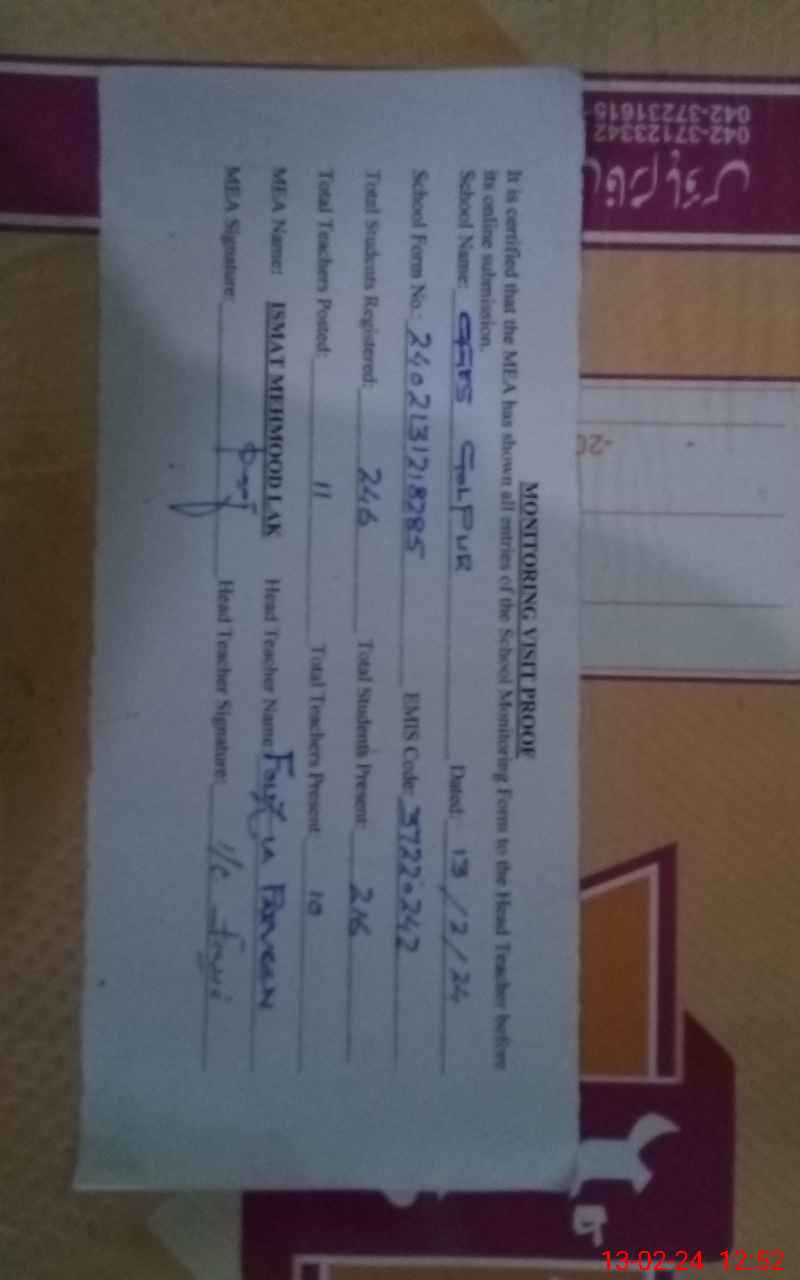 MONITORING VISIT PROOF
It is certified that the MEA has shown all entries of the School Monitoring Form to the Head Teacher before
its online submission.
School Name: GES GOLPUR Dated: 13/2/24
School Form No.: 2402131218285 EMIS Code: 37220242
Total Students Registered: 246 Total Students Present: 216
Total Teachers Posted: 11 Total Teachers Present: 10
MEA Name: ISMAT MEHMOOD LAK Head Teacher Name Fouzia Parveen
MEA Signature: Head Teacher Signature: I/C
042-37231615
042-37123342
-20
13-02-24 12:52